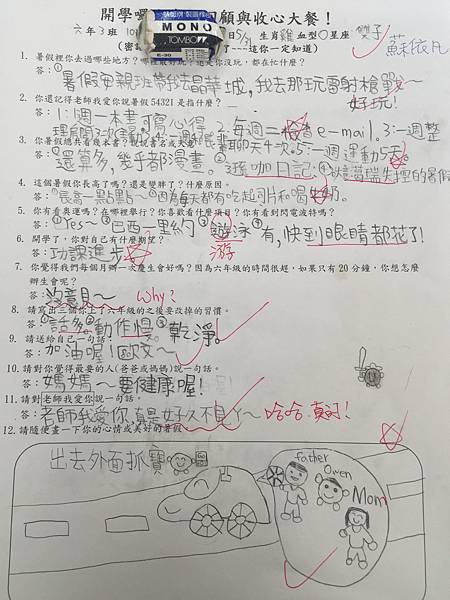 開學 回顧與收心大餐！
MONO
TOMBOW
六年3班 10 5/ 生肖雞 血型O 星座雙子
蘇依凡
一這你一定知道)
1. 暑假裡你去過哪些地方？哪裡最好玩？還是你沒玩，都在忙什麼？
答：暑假安親班帶我去晶華城，我去那玩雷射槍戰～
好玩！
2. 你還記得老師我愛你說暑假54321是指什麼？
答：1:週一本書寫心得 2.每週二 e-mail。3:一週整
理廚 3次 4:一週 聊天十次。5:一週運動5天。
3. 你暑假總共看幾本書？說說書名或大意
答：①還算多，幾乎都漫畫。 ③ 咖日記。 瑞失 的暑假
4. 這個暑假你長高了嗎？還是變胖了？什麼原因。
答：①長高一點點 ②因為每天都有吃起司片和喝牛奶。
5. 你有看奧運嗎？在哪裡舉行？你喜歡看什麼項目？你有看到閃電波特嗎？
答：①Yes～②巴西－里約 ③游泳 ④有，快到眼睛都花了！
游
6. 開學了，你對自己有什麼期望？
答：功課進步
7. 你覺得我們每個月辦一次慶生會好嗎？因為六年級的時間很趕，如果只有20分鐘，你想怎麼
辦生會呢？
答：沒意見～ why？
8. 請寫出三個你上了六年級的之後要改掉的習慣。
答：①話多。②動作慢。③乾淨。
9. 請送給自己一句話：
答：加油喔！歐文～
10. 請對你覺得最要的人(爸爸或媽媽)說一句話。
答：媽媽～要健康喔！
11. 請對老師我愛你說一句話。
答：老師我愛你，真是好久不見ㄚ～ 哈哈 真的！
12. 請隨便畫一下你的心情或美好的暑假
出去外面抓寶
father
Owen
Mom